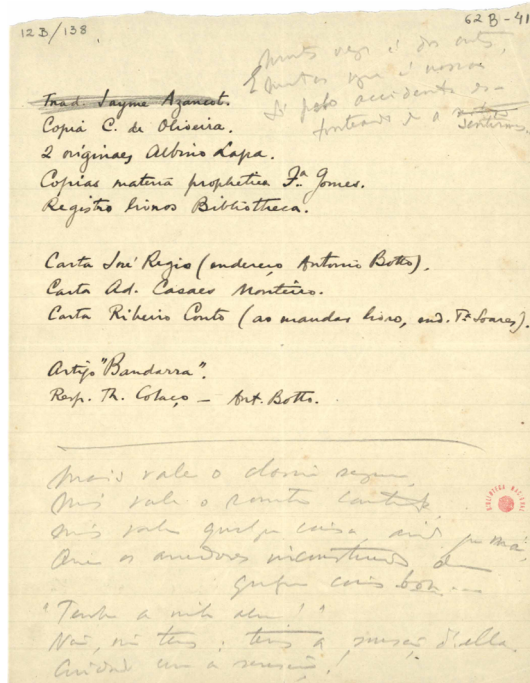 12 B / 138
62 B - 41
muitas vezes é dos outros,
E muitas vezes é nosso
Só pelo accidente de
a
sentirmos.
Trad. Jayme Azancot.
Copia C. de Oliveira.
2 originaes Albino Lapa.
Copias materia prophetica Fª Gomes.
Registro livros Bibliotheca.
Carta José Regio (endereço Antonio Botto).
Carta Ad. Casaes Monteiro.
Carta Ribeiro Couto (ao mandar livro, end. Tª Soares).
Artigo "Bandarra".
Resp. Th. Colaço — Art. Botto.
mais vale o
mais vale o
mais vale qualquer coisa, ainda que má,
Que os
qualquer coisa boa...
"Tenho a minha alma!"
Não, não tens: tens a sensação d'ella.
Cuidado com a sensação!
BIBLIOTECA NACIONAL